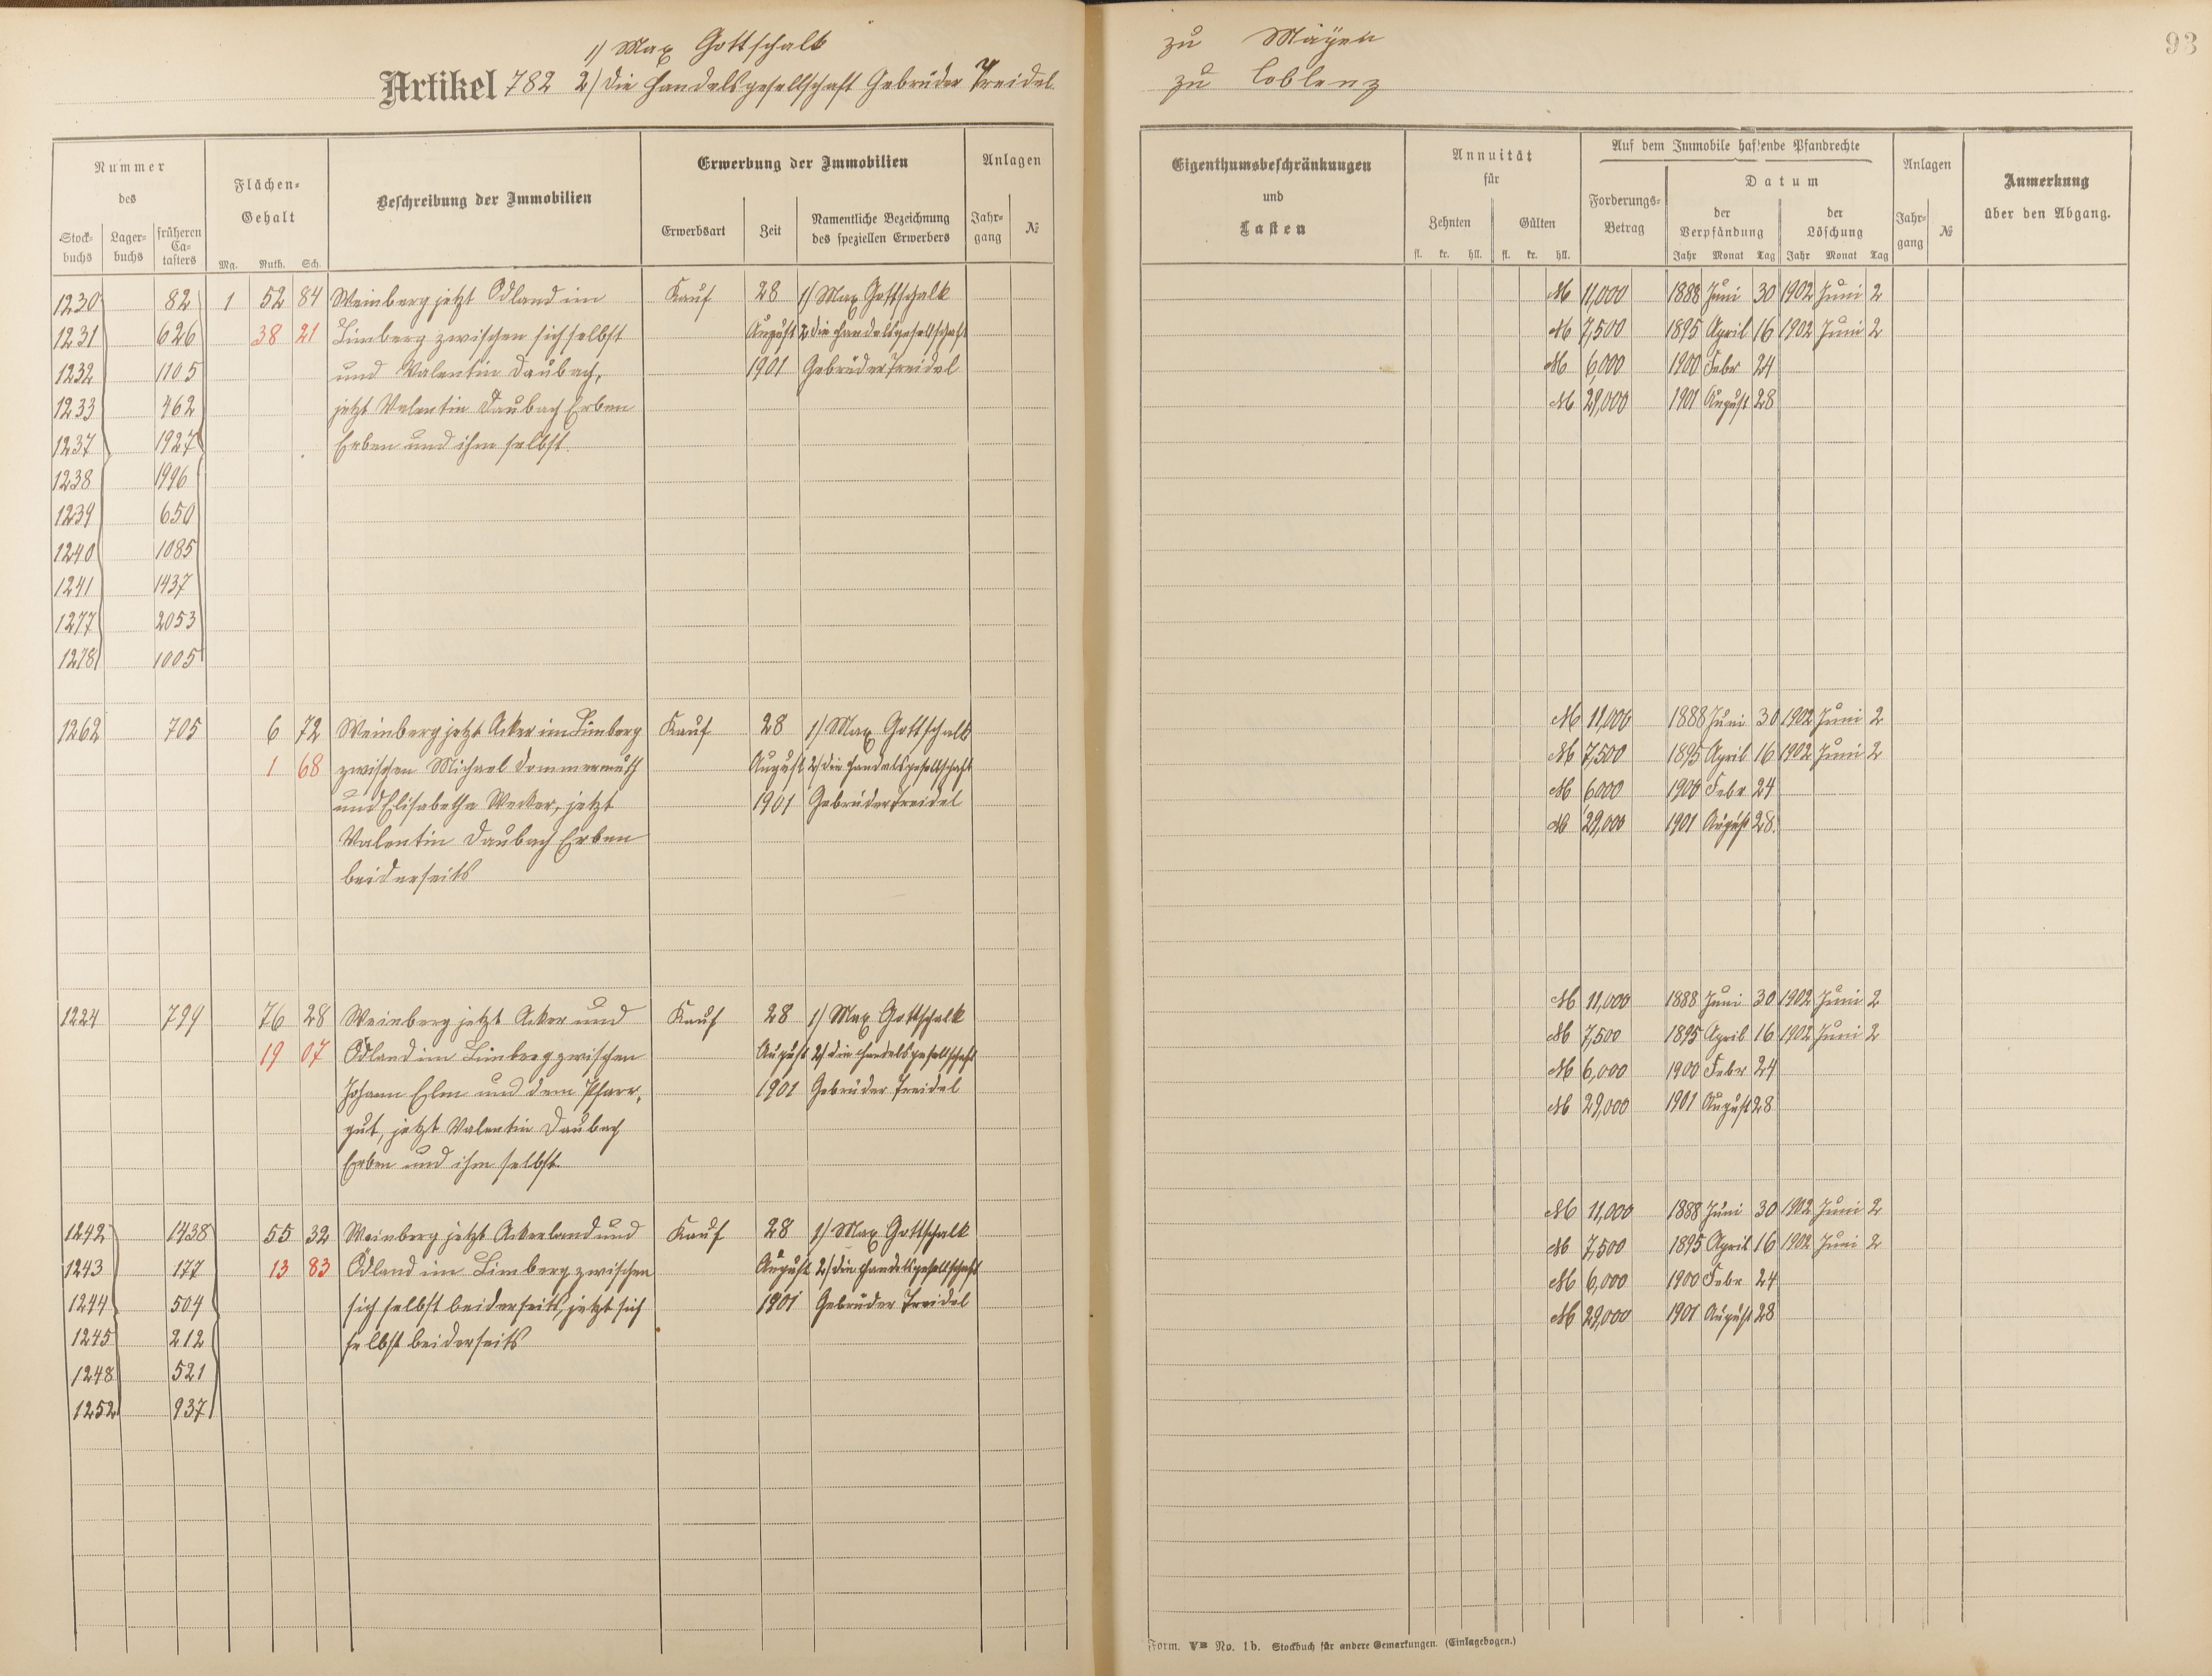 1) Max Gottschalk
Artikel 782 2) die Handelsgesellschaft Gebrüder Treidel
zu Mayen
zu Coblenz
93
Nummer des
Stockbuchs
Lagerbuchs
früheren Catasters
Flächen-Gehalt
Mg. Ruth. Sch.
Beschreibung der Immobilien
Erwerbung der Immobilien
Erwerbsart
Zeit
Namentliche Bezeichnung des speziellen Erwerbers
Anlagen
Jahrgang
№
1230 82 1 52 84 Weinberg jetzt Ödland im Kauf 28 1) Max Gottschalk
1231 626 38 21 Limberg zwischen sich selbst August 2) die Handelsgesellschaft
1232 1105 und Valentin Daubach, 1901 Gebrüder Treidel
1233 462 jetzt Valentin Daubach Erben
1237 1927 Erben und ihm selbst.
1238 1996
1239 650
1240 1085
1241 1437
1277 2053
1278 1005
1262 705 6 72 Weinberg jetzt Acker im Limberg Kauf 28 1) Max Gottschalk
1 68 zwischen Michael Dommermuth August 2) die Handelsgesellschaft
und Elisabetha Wecker, jetzt 1901 Gebrüder Treidel
Valentin Daubach Erben
beiderseits
1224 799 76 28 Weinberg jetzt Acker und Kauf 28 1) Max Gottschalk
19 07 Ödland im Limberg zwischen August 2) die Handelsgesellschaft
Johann und dem Pfarr- 1901 Gebrüder Treidel
gut, jetzt Valentin Daubach
Erben und ihm selbst.
1242 1438 55 32 Weinberg jetzt Ackerland und Kauf 28 1) Max Gottschalk
1243 177 13 83 Ödland im Limberg zwischen August 2) die Handelsgesellschaft
1244 504 sich selbst beiderseits, jetzt sich 1901 Gebrüder Treidel
1245 212 selbst beiderseits
1248 521
1252 937
Eigenthumsbeschränkungen und Lasten
Annuität für
Zehnten
Gülten
fl. kr. hll. fl. kr. hll.
Auf dem Immobile haftende Pfandrechte
Forderungs-Betrag
Datum
der Verpfändung
der Löschung
Jahr Monat Tag Jahr Monat Tag
Anlagen
Jahrgang
№
Anmerkung über den Abgang.
M 11,000 1888 Juni 30 1902 Juni 2
M 7,500 1895 April 16 1902 Juni 2
M 6,000 1900 Febr 24
M 29,000 1901 August 28
M 11,000 1888 Juni 30 1902 Juni 2
M 7,500 1895 April 16 1902 Juni 2
M 6,000 1900 Febr 24
M 29,000 1901 August 28
M 11,000 1888 Juni 30 1902 Juni 2
M 7,500 1895 April 16 1902 Juni 2
M 6,000 1900 Febr 24
M 29,000 1901 August 28
M 11,000 1888 Juni 30 1902 Juni 2
M 7,500 1895 April 16 1902 Juni 2
M 6,000 1900 Febr 24
M 29,000 1901 August 28
Form. VB No. 1b. Stockbuch für andere Gemarkungen. (Einlagebogen.)